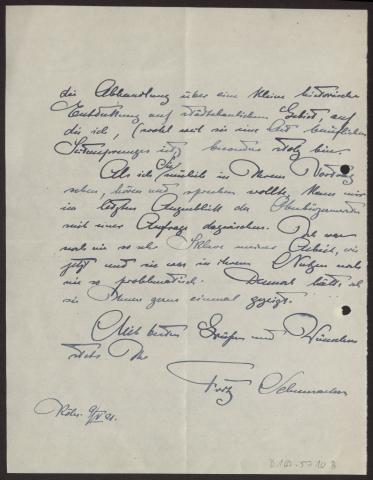 die Abhandlung über eine kleine historische
Entdeckung auf städtebaulichem Gebiet, auf
die ich, (wohl weil sie eine Art beruflichen
besonders stolz bin.
Als ich Sie neulich in Ihrem Vortrag
sehen, hören und sprechen wollte, kam mir
im letzten Augenblick der Oberbürgermeister
mit einer Anfrage dazwischen. Ich war
noch nie so sehr Sklave meiner Arbeit, wie
jetzt und nie war in ihrem Nutzen noch
nie so problematisch. Darum hätte ich
sie Ihnen gerne einmal gezeigt.
Mit besten Grüßen und Wünschen
stets Ihr
Fritz Schumacher
Köln. 9/IV 21.